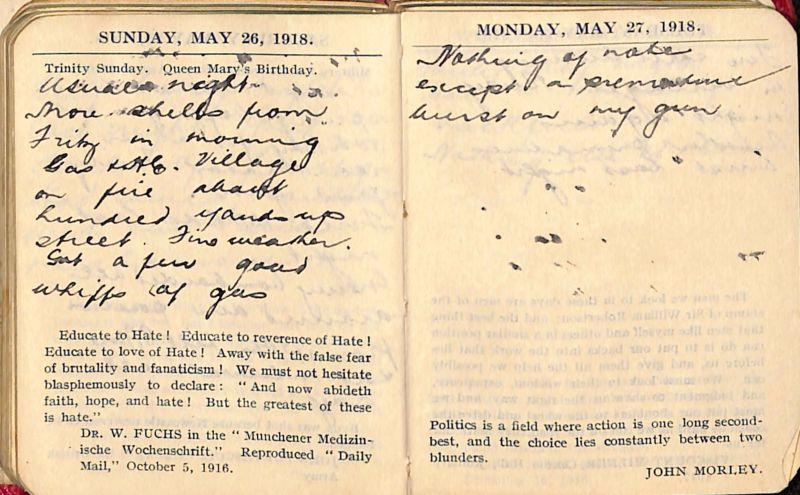 SUNDAY, MAY 26, 1918.
Trinity Sunday. Queen Mary's Birthday.
Usual night.
More shells from
Fritz in morning
Gas & H.E. Village
on fire about
hundred yards up
street. Fine weather.
Got a few good
whiffs of gas
Educate to Hate! Educate to reverence of Hate!
Educate to love of Hate! Away with the false fear
of brutality and fanaticism! We must not hesitate
blasphemously to declare: "And now abideth
faith, hope, and hate! But the greatest of these
is hate."
DR. W. FUCHS in the "Munchener Medizin-
ische Wochenschrift." Reproduced "Daily
Mail," October 5, 1916.
MONDAY, MAY 27, 1918.
Nothing of note
except a premature
burst on my gun
Politics is a field where action is one long second-
best, and the choice lies constantly between two
blunders.
JOHN MORLEY.